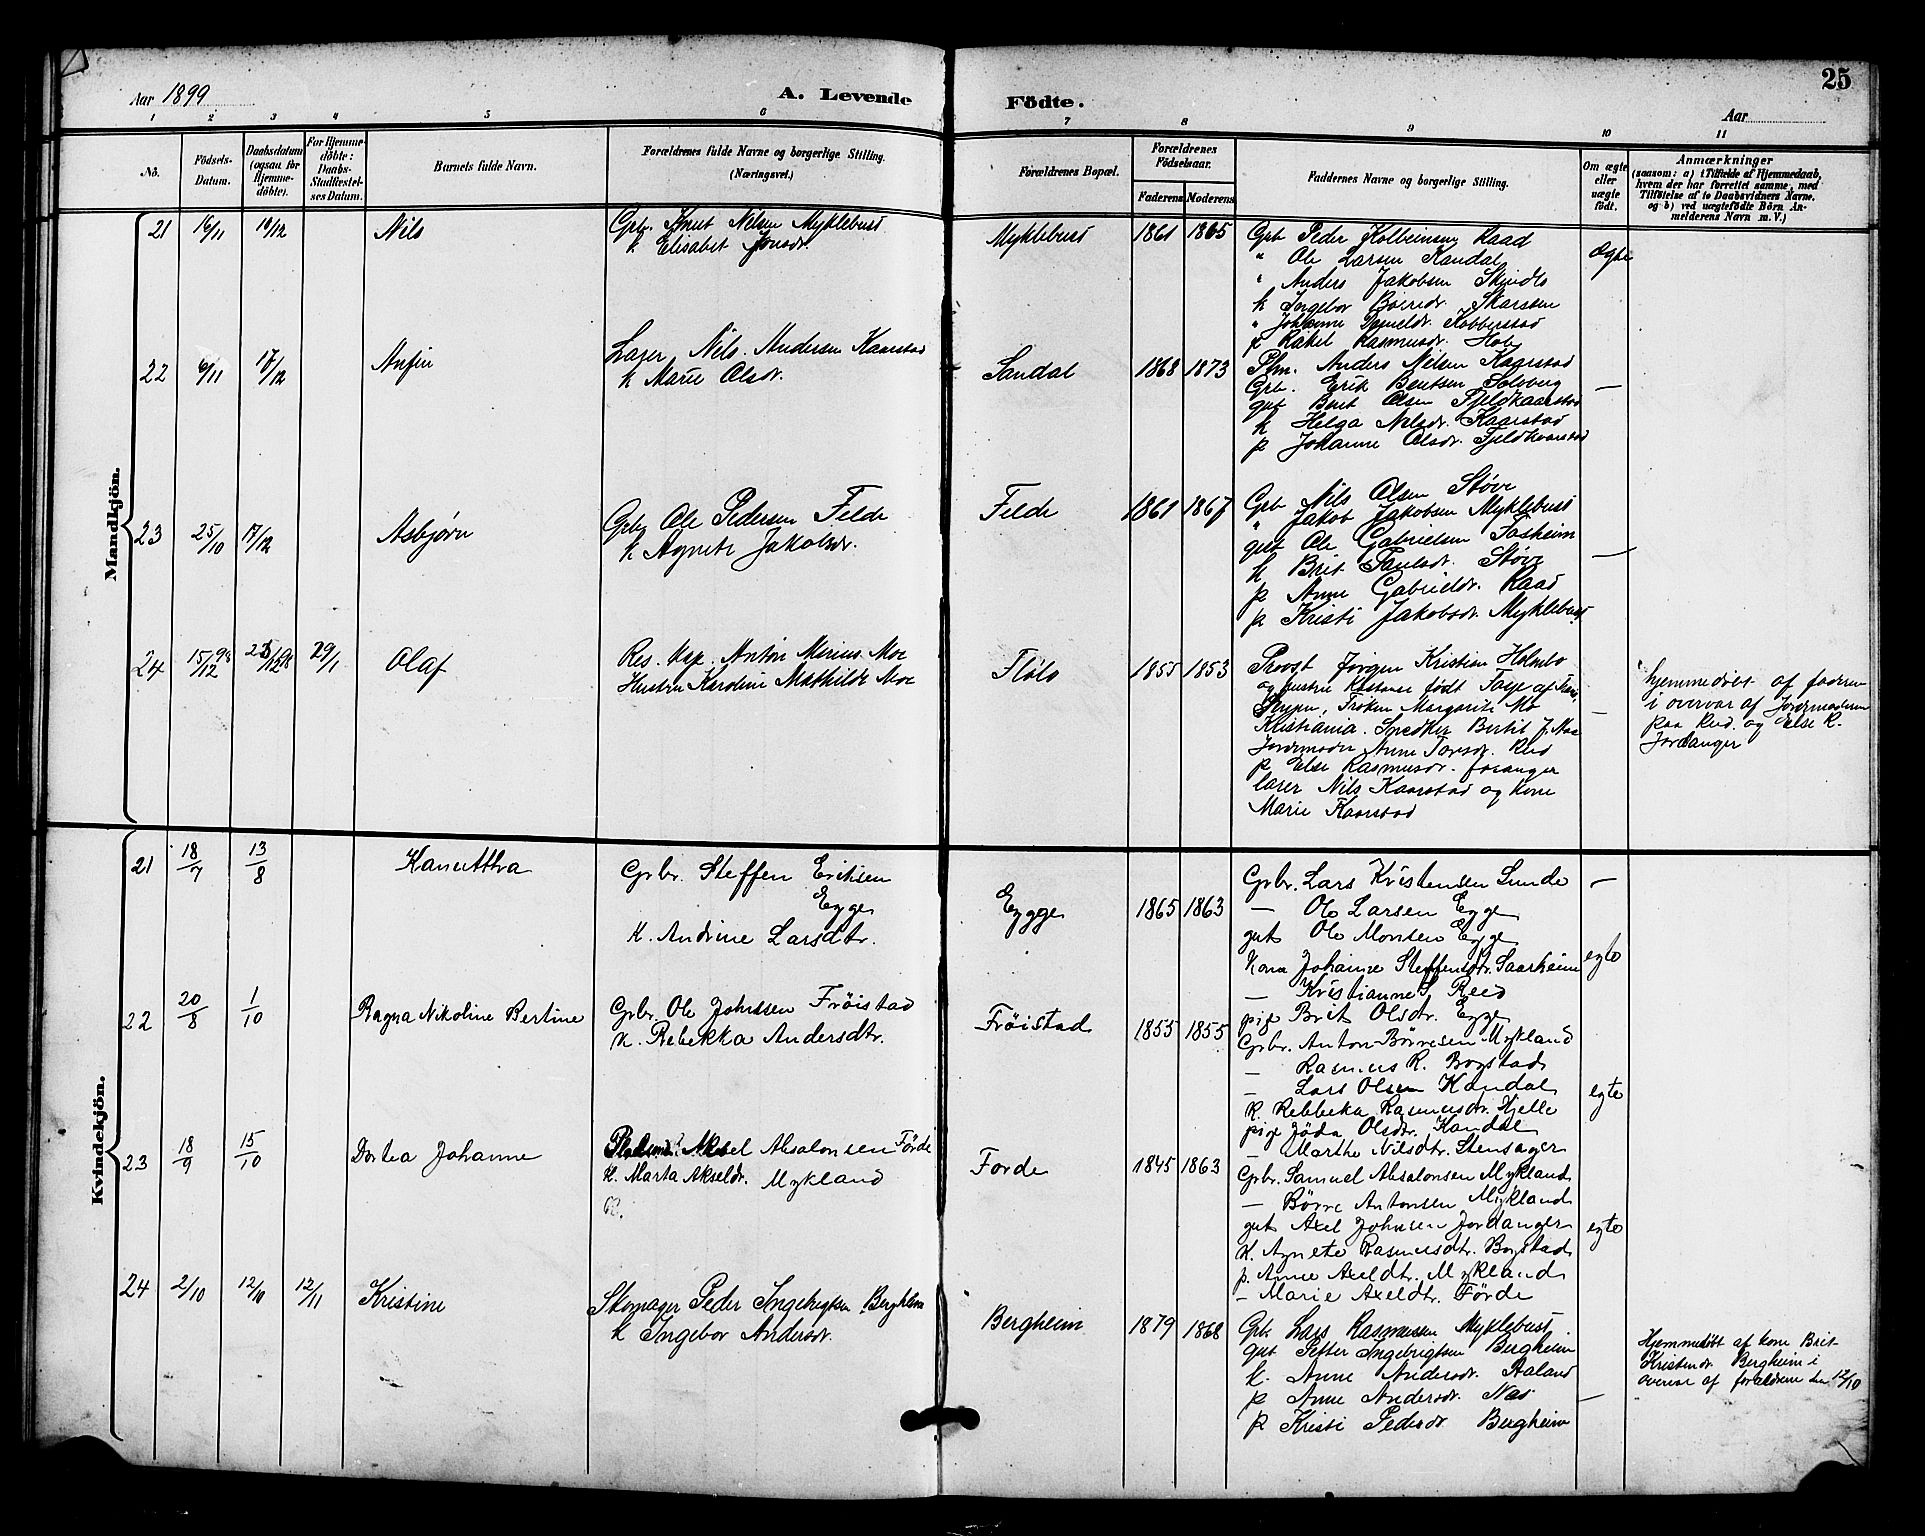 25
Aar 1899
A. Levende
Födte.
Aar
1 2 3 4 5 6 7 8 9 10 11
No.
Födsels-Datum.
Daabsdatum (ogsaa for Hjemme-döbte).
For Hjemme-döbte: Daabs-Stadfæstel-ses Datum.
Barnets fulde Navn.
Forældrenes fulde Navne og borgerlige Stilling.
(Næringsvei.)
Forældrenes Bopæl.
Forældrenes Födselsaar.
Faderens
Moderens
Faddernes Navne og borgerlige Stilling.
Om ægte eller uægte födt.
Anmærkninger
(saasom: a) i Tilfælde af Hjemmedaab, hvem der har forrettet samme, med Tilföielse af to Daabsvidners Navne, og b) ved uægtefödte Börn An-melderens Navn m. V.)
Mandkjön.
21 16/11 10/12 Nils
Grbr. Knut Nilsen Myklebust
k Elisabet Jonsdr.
Myklebust 1861 1865
Grb Peder Kolbeinsen Raad
" Ole Larsen Kandal
" Anders Jakobsen
k Ingebor Skarsten
" Johanne Danieldr. Kobberstad
p Rakel Rasmusdr.
Ægte
22 6/11 17/12 Anfin
Lærer Nils Andersen Kaarstad
k Marie Olsdr.
Sandal 1868 1873
Anders Nilsen Kaarstad
Grb. Erik Bentsen Solberg
gut Bent Olsen Fjeldkaarstad
k Helga Nilsdr. Kaarstad
p Johanne Olsdr. Fjeldkaarstad
—
23 25/10 17/12 Asbjørn
Grbr Ole Pedersen Felde
k Agnete Jakobsdr.
Felde 1861 1867
Grb Nils Olsen Støve
" Jakob Jakobsen Myklebust
gut Ole Gabrielsen Fosheim
k Brit Paulsdr. Støve
p Anne Gabrieldr. Raad
p Kristi Jakobsdr. Myklebust
—
24 15/12 98 98 29/1 Olaf
Res. Kap. Anton Marius Moe
Hustru Karoline Mathilde Moe
Fløto 1855 1853
Provst Jørgen Kristian Holmbo
og hustru født
Frøken Margarite Mo
Kristiania. Snedker Bertil J. Moe
Jordmoder Anne Torsdr. Reed
p Else Rasmusdr.
lærer Nils Kaarstad og kone
Marie Kaarstad
—
hjemmedøbt af faderen
i overvær af Jordmoderen
paa Reed og Else R.
Jordanger
Kvindekjön.
21 18/7 13/8 Kanutthea
Grbr. Steffen Eriksen
Egge
k. Andrine Larsdtr.
Egge 1865 1863
Grbr. Lars Kristensen Sunde —
— Ole Larsen Egge
gut Ole Monsen Egge
kona Johanne Steffensdtr. Saarheim
— Kristianne S. Reed
pige Brit Olsdtr. Egge
egte
22 20/8 1/10 Ragna Nikoline Bertine
Grbr. Ole Johnsen Frøistad
k. Rebekka Andersdtr.
Frøistad 1855 1855
Grbr. Anton Børresen Mykland
— Rasmus R. Bogstad
— Lars Olsen Kandal
k. Rebbeka Rasmusdtr. Hjelle
pige Jøda Olsdtr. Kandal
— Marthe Nilsdtr. Stensager
egte
23 18/9 15/10 Dortea Johanne
Aksel Absalonsen Förde
k. Marta Akseldr. Mykland
Förde 1845 1863
Grbr. Samuel Absalonsen Mykland
— Børre Antonsen Mykland
gut Axel Johnsen Jordanger
k. Agnete Rasmusdtr. Bogstad
p. Anne Axeldtr. Mykland
— Marie Axeldtr. Förde
egte
24 2/10 12/10 12/11 Kristine
Skomager Peder Ingebrigtsen Bergheim
k Ingebor Andersdr.
Bergheim 1879 1868
Grb. Lars Rasmussen Myklebust
gut Petter Ingebrigtsen Bergheim
k. Anne Andersdr. Aaland
p Anne Andersdr. Nøs
p Kristi Pedersdr. Bergheim
—
Hjemmedøbt af kone Brit
Kristendr. Bergheim i
overvær af forældrene den 12/10